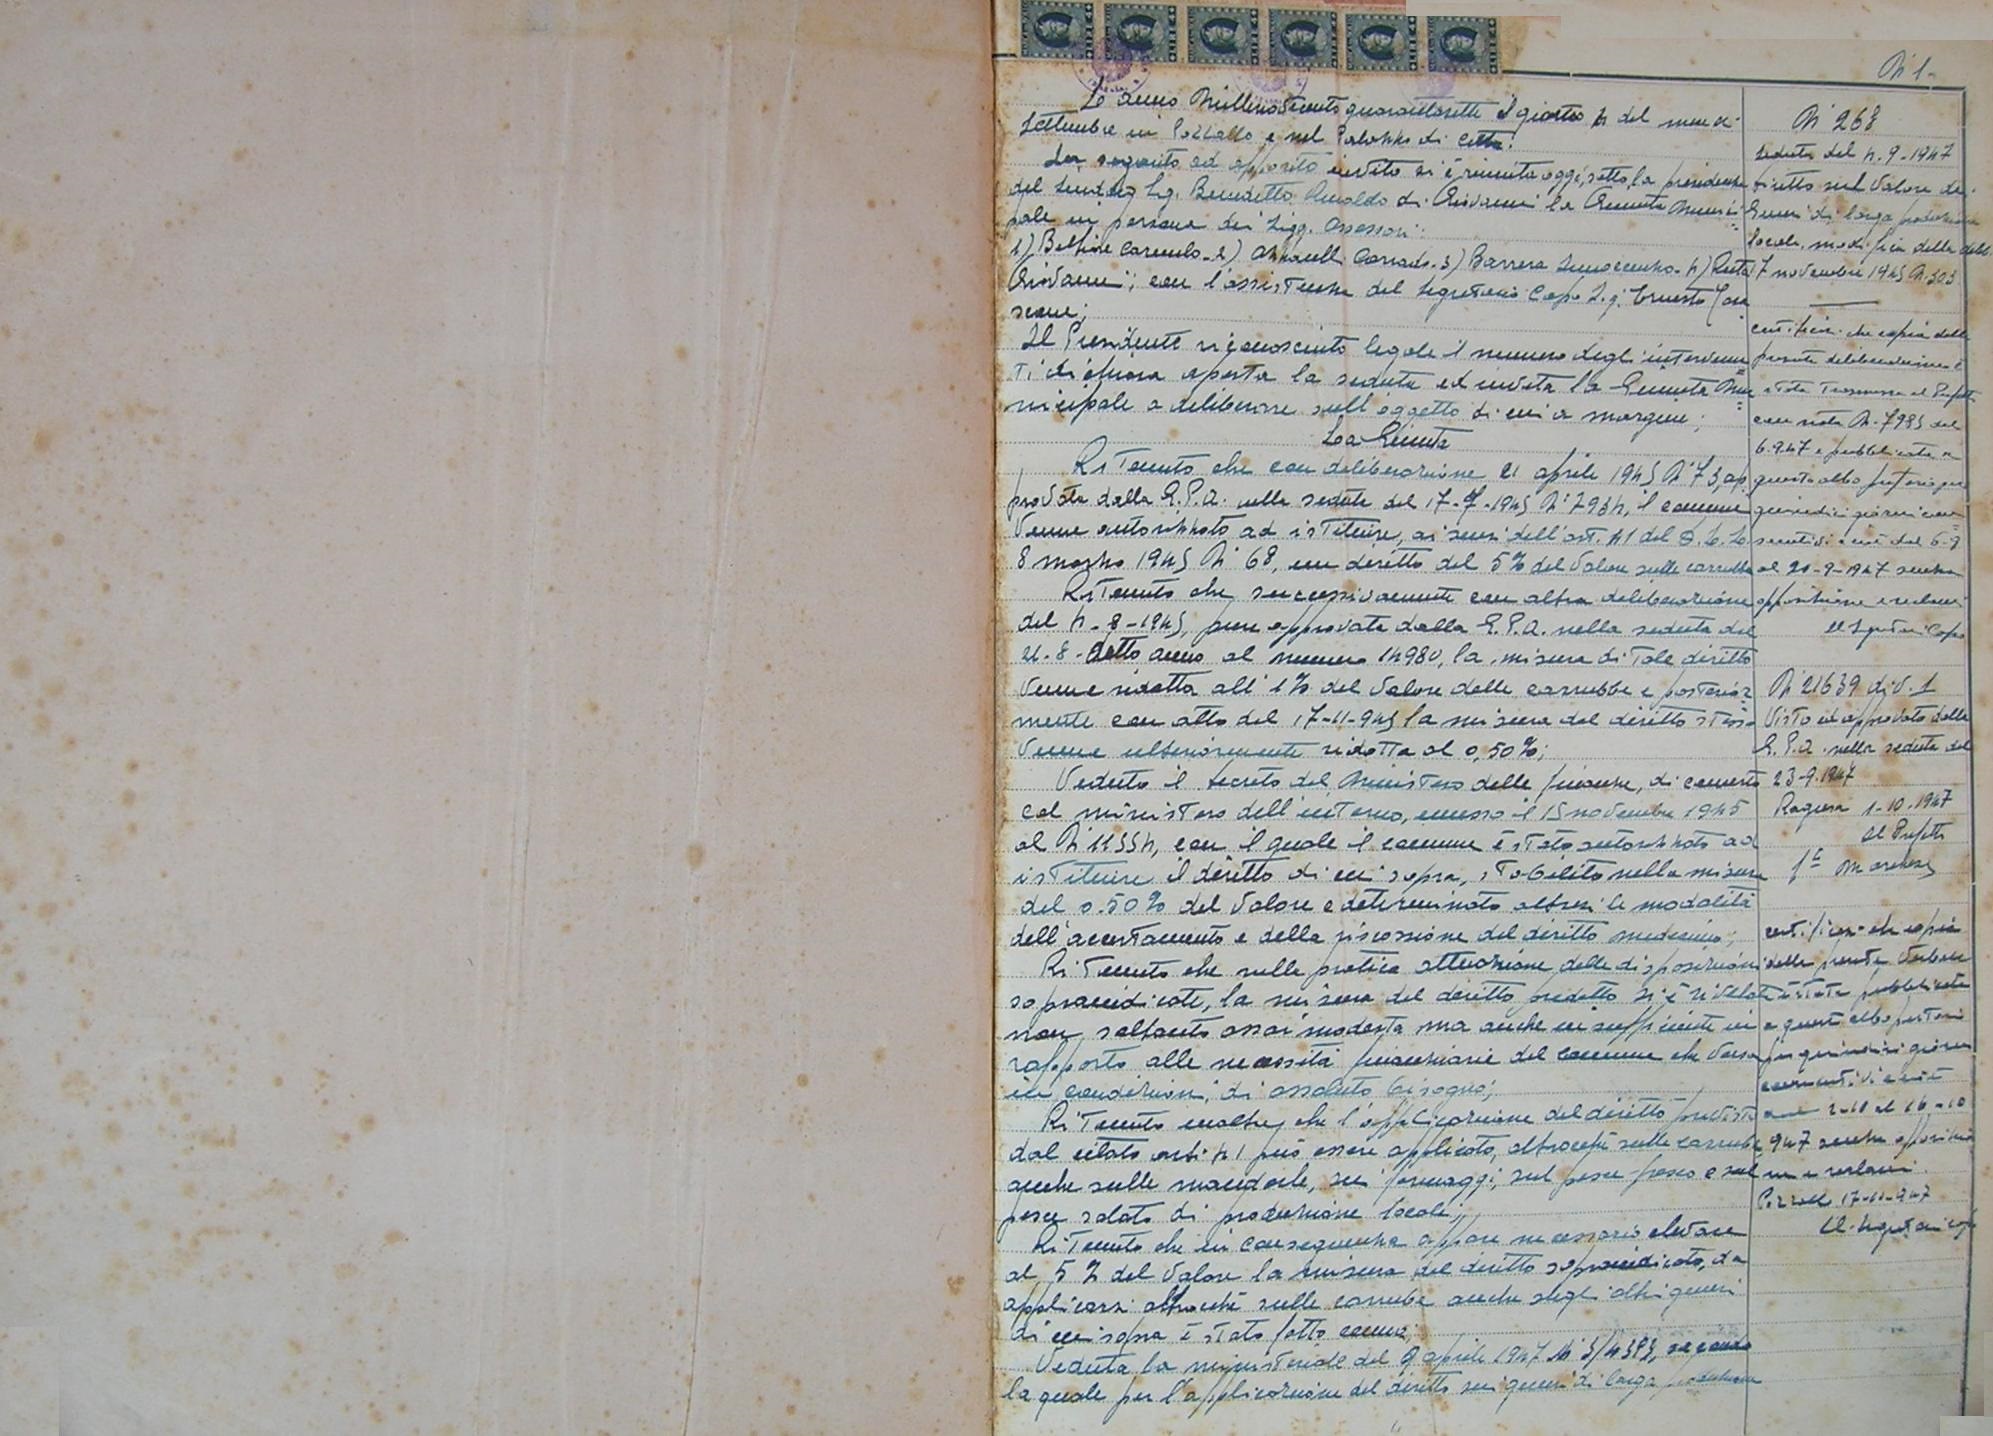 N 1-
Lo anno Millenovecento quarantasette il giorno 4 del mese di
Settembre in Pozzallo e nel Palazzo di Città.
In seguito ad apposito invito si è riunita oggi, sotto la presidenza
del Sindaco Sig. Benedetto Rinaldo di Giovanni la Giunta Munici=
pale in persona dei Sigg. Assessori:
1) Belfiore Carmelo - 2) Azzarelli Corrado - 3) Barrera Innocenzo - 4) Rosta
Giovanni; con l'assistenza del Segretario Capo Sig. Ernesto
Il Presidente riconosciuto legale il numero degli intervenu=
ti dichiara aperta la seduta ed invita la Giunta Mu=
nicipale a deliberare sull'oggetto di cui a margine;
La Giunta
Ritenuto che con deliberazione 21 aprile 1945 N° 73, ap
provata dalla G.P.A. nella seduta del 17-7-1945 N° 7934, il comune
venne autorizzato ad istituire, ai sensi dell'art. 41 del D.L.L.
8 marzo 1945 N° 68, un diritto del 5% del valore sulle carrubbe
Ritenuto che successivamente con altra deliberazione
del 4-8-1945, pure approvata dalla G.P.A. nella seduta del
21-8-detto anno al numero 14980, la misura di tale diritto
venne ridotta all'1% del valore delle carrubbe e posterior=
mente con atto del 17-11-945 la misura del diritto stesso
venne ulteriormente ridotta al 0,50%;
Veduto il decreto del Ministero delle finanze, di concerto
col ministero dell'interno, emesso il 15 novembre 1945
al N° 11554, con il quale il comune è stato autorizzato ad
istituire il diritto di cui sopra, stabilito nella misura
del 0.50% del valore e determinato altresì le modalità
dell'accertamento e della riscossione del diritto medesimo;
Ritenuto che nella pratica attuazione delle disposizioni
sopraindicate, la misura del diritto predetto si è rivelata
non soltanto assai modesta ma anche insufficiente in
rapporto alle necessità finanziarie del comune che versa
in condizioni di assoluto bisogno;
Ritenuto inoltre che l'applicazione del diritto previsto
dal citato art. 41 può essere applicato, altrocchè sulle carrube
anche sulle mandorle, sui formaggi, sul pesce fresco e sul
pesce salato di produzione locale;
Ritenuto che in conseguenza appare necessario elevare
al 5% del valore la misura del diritto sopraindicato, da
applicarsi altrocchè sulle carrube anche sugli altri generi
di cui sopra è stato fatto cenno;
Veduta la ministeriale del 9 aprile 1947 N° 3/4393, secondo
la quale per l'applicazione del diritto sui generi di larga produzione
N 268
Seduta del 4-9-1947
diritto sul valore dei
Generi di larga produzione
locale. modifica della delib.
17 novembre 1945 N. 303
certifico che copia della
presente deliberazione è
stata trasmessa al Prefetto
con nota N. 7985 del
6-9-47 e pubblicata a
questo albo pretorio per
quindici giorni con=
secutivi e cioè dal 6-9
al 20-9-1947 senza
opposizione e reclami
Il Segretario Capo
N° 21639 div. 1
Visto ed approvato dalla
G.P.A. nella seduta del
23-9-1947
Ragusa 1-10-1947
Il Prefetto
certifico che copia
della presente verbale
è stata pubblicata
a questo albo pretorio
per quindici giorni
consecutivi e cioè
2-10 al 16-10
947 senza opposizio
ni e reclami.
Pozzallo 17-11-947
Il Segretario Capo